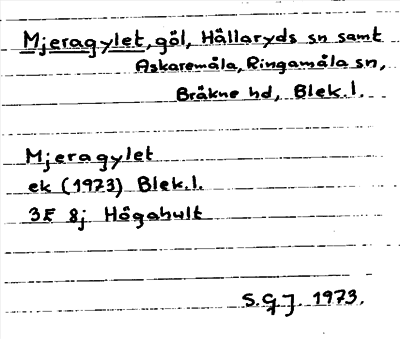 Mjeragylet, göl, Hällaryds sn samt
Askaremåla, Ringamåla sn,
Bräkne hd, Blek.l.
Mjeragylet
ek (1973) Blek.l.
3F 8j Högahult
S.G.J. 1973.